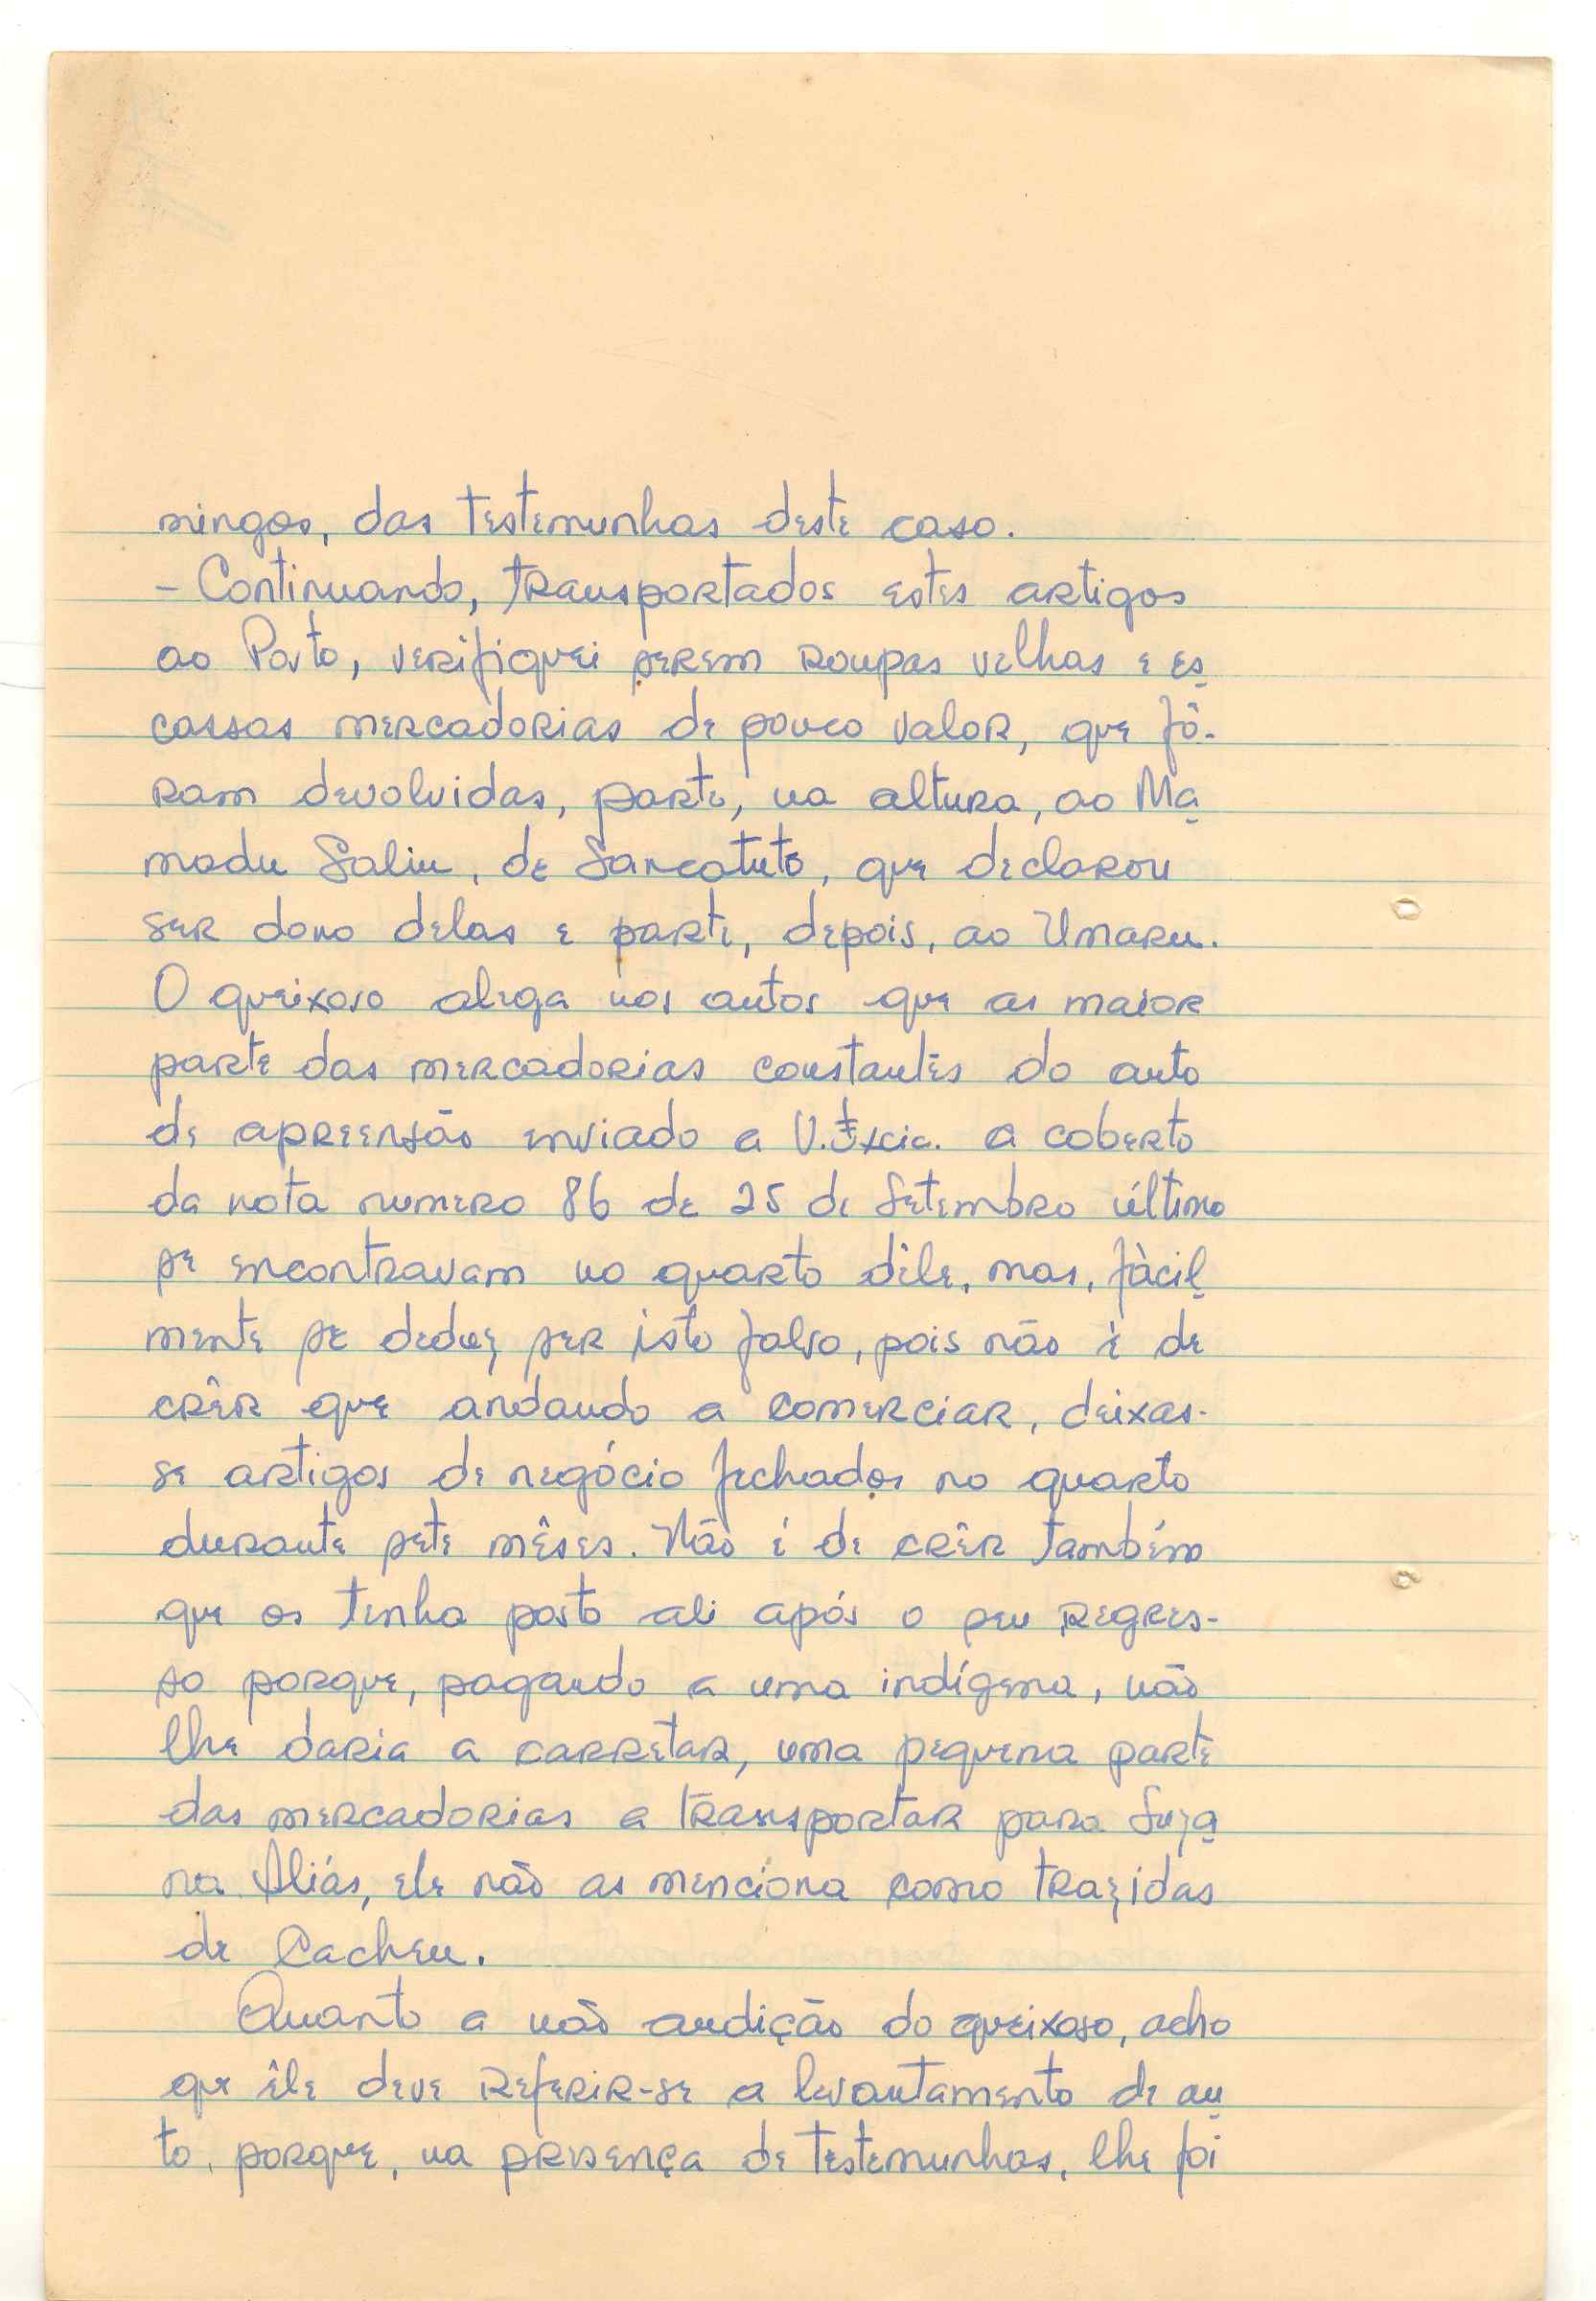 mingos, das testemunhas deste caso.
- Continuando, transportados estes artigos
ao Posto, verifiquei serem roupas velhas e es
cassas mercadorias de pouco valor, que fô-
ram devolvidas, parte, na altura, ao Ma
madu Saliu, de Sancatuto, que declarou
ser dono delas e parte, depois, ao Umaru.
O queixoso alega nos autos que as maior
parte das mercadorias constantes do auto
de apreensão enviado a V. Excia. a coberto
da nota numero 86 de 25 de Setembro último
se encontravam no quarto dêle, mas, fàcil
mente se deduz ser isto falso, pois não é de
crêr que andando a comerciar, deixas-
se artigos de negócio fechados no quarto
durante sete mêses. Não é de crêr também
que os tenha posto ali após o seu regres-
so porque, pagando a uma indígena, não
lhe daria a carretar, uma pequena parte
das mercadorias a transportar para Suza
na. Aliás, ele não as menciona como trazidas
de Cacheu.
Quanto a não audição do queixoso, acho
que êle deve referir-se a levantamento de au
to, porque, na presença de testemunhas, lhe foi